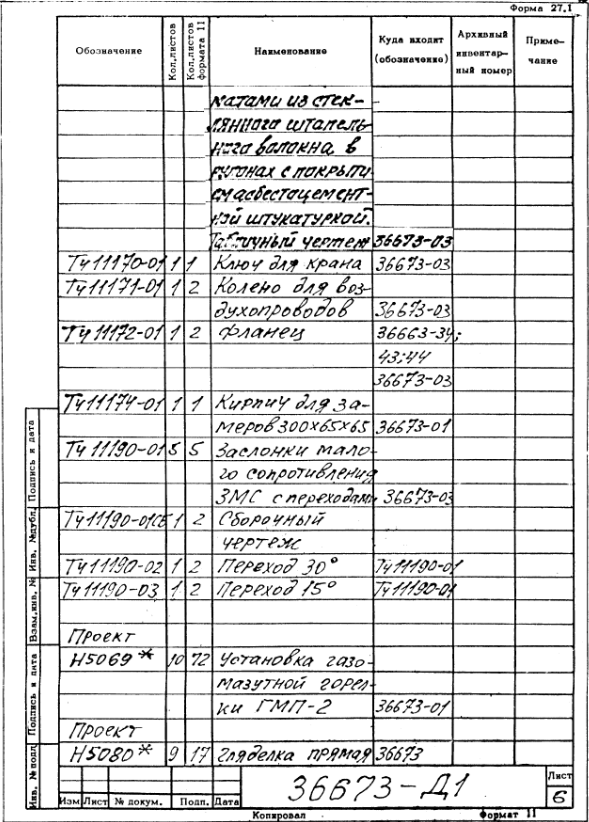 Форма 27.1
Обозначение Кол.листов Кол.листов формата 11 Наименование Куда входит (обозначение) Архивный инвентарный номер Примечание
матами из стек-
лянного штапель-
ного волокна в
рулонах с покрыти-
ем асбестоцемент-
ной штукатуркой.
Табличный чертеж 36673-03
Тч11170-01 1 1 Ключ для крана 36673-03
Тч11171-01 1 2 Колено для воз-
духопроводов 36673-03
Тч11172-01 1 2 Фланец 36663-34;
43;44
36673-03
Тч11174-01 1 1 Кирпич для за-
меров 300х65х65 36673-01
Тч 11190-01 5 5 Заслонки мало-
го сопротивления
ЗМС с переходами 36673-03
Тч11190-01СБ 1 2 Сборочный
чертеж
Тч11190-02 1 2 Переход 30° Тч11190-01
Тч11190-03 1 2 Переход 15° Тч11190-01
Проект
Н5069* 10 72 Установка газо-
мазутной горел-
ки ГМП-2 36673-01
Проект
Н5080* 9 17 Гляделка прямая 36673
Инв. № подл. Подпись и дата Взам.инв. № Инв. № дубл. Подпись и дата
36673-Д1
Лист
6
Изм Лист № докум. Подп. Дата
Копировал Формат 11